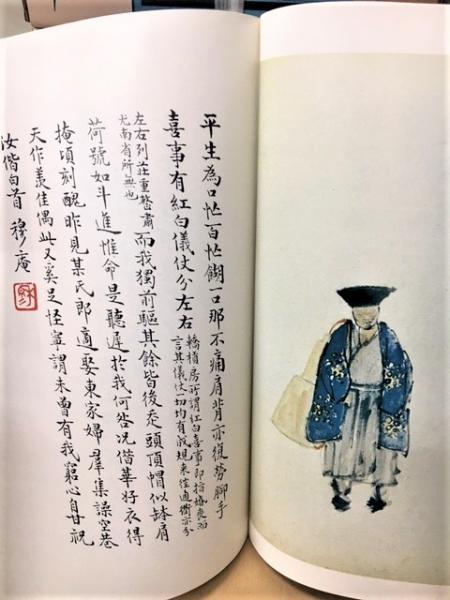 平生為口忙百忙餬一口那不痛肩背亦復勞腳手
喜事有紅白儀仗分左右
轎槓房所謂紅白喜事即指婚喪而
言其儀仗一切均有成規來往通衢亦分
左右列莊重整肅
尤南省所無也
而我獨前驅其餘皆後走頭頂帽似缽肩
荷號如斗進惟命是聽遲於我何咎況借華好衣得
掩頃刻醜昨見某氏郎適娶東家婦羣集譟空巷
天作美佳偶此又奚足怪寧謂朱曾有我窮心自甘祝
汝偕白首 穆庵